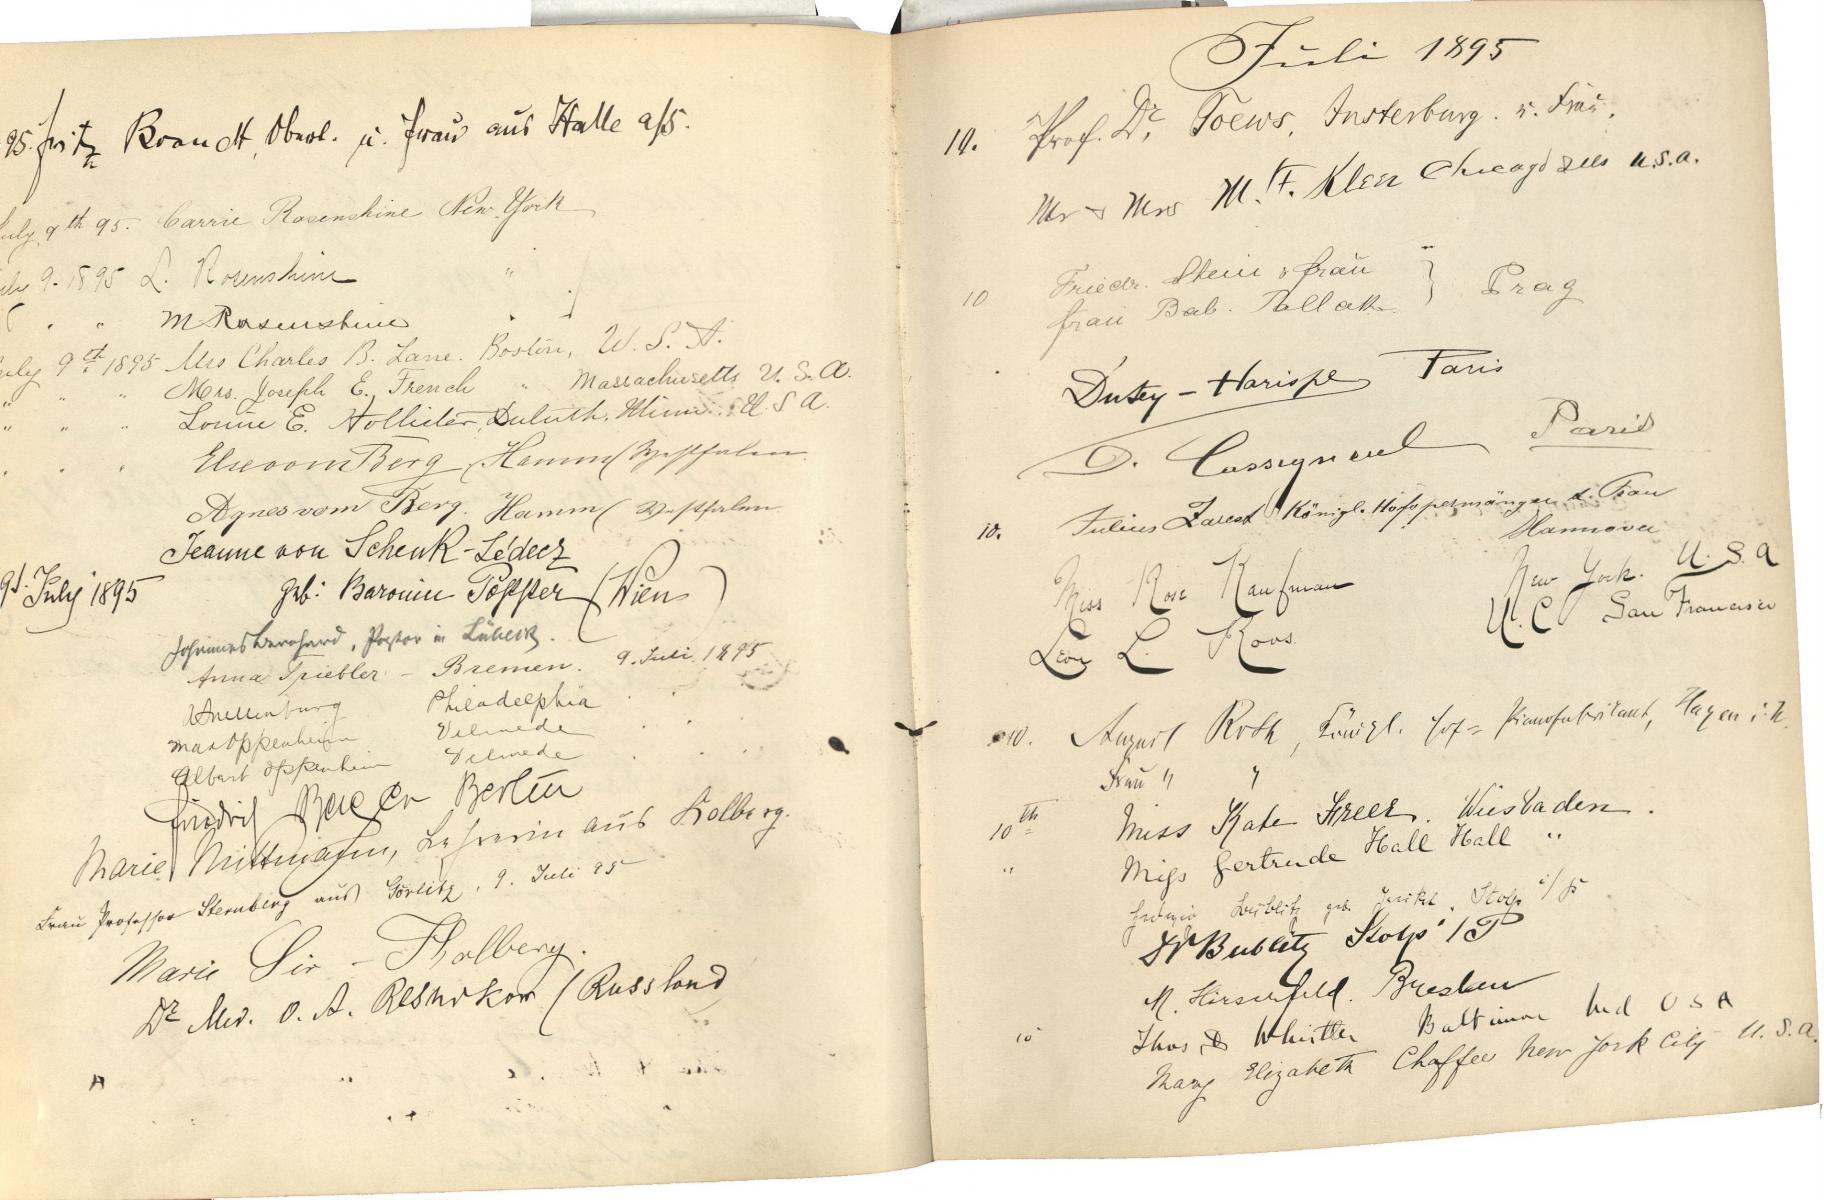 95. Fritz Brandt, Oberl. u. Frau aus Halle a/S.
July 9th 95. Carrie Rosenshine New York
July 9. 1895 L. Rosenshine "
" " M Rosenshine "
July 9th 1895 Mrs Charles B. Lane. Boston, U. S. A.
" " " Mrs. Joseph E. French " Massachusetts U. S. A.
" " " Louise E. Hollister, Duluth, Minn. U S A.
" " " Else vom Berg, Hamm (Westfalen
Agnes vom Berg. Hamm (Westfalen
Jeanne von Schenk-Lédecz
9t. July 1895 geb: Baronin (Wien)
Johannes Bernhard, Pastor in Lübeck.
Anna Triebler - Bremen. 9. Juli 1895
Philadelphia
Max Oppenheim Velmede
Albert Oppenheim Velmede
Friedrich Berlin
Marie Mittmann, Lehrerin aus Kolberg.
Frau Professor Sternberg aus Görlitz, 9. Juli 95
Marie Sir - Thalberg.
Dr Med. O. A. Resnikow (Russland)
Juli 1895
10. Prof. Dr. Toews, Insterburg. u. Frau.
Mr & Mrs M. F. Klein Chicago Ills U.S.A.
10 Friedr. Stein & Frau } Prag
Frau Bab. Pollak
Dutey-Harispe Paris
D. Cassigneul Paris
10. Julius Zarest Königl. Hofopernsänger u. Frau
Hannover
Miss Rose Kaufman New York. U. S. A
Leon L. Roos. U. C San Francisco
10. August Roth, Königl. Hof-Pianofabrikant, Hagen i. W.
Frau " "
10th Miss Kate Freer. Wiesbaden.
" Miss Gertrude Hall Hall "
Bublitz geb. Stolp i/P
Dr Bublitz Stolp i/P
M. Hirschfeld. Breslau
10 Thos D Whistler Baltimore Md U S A
Mary Elizabeth Chaffee New York City U. S. A.